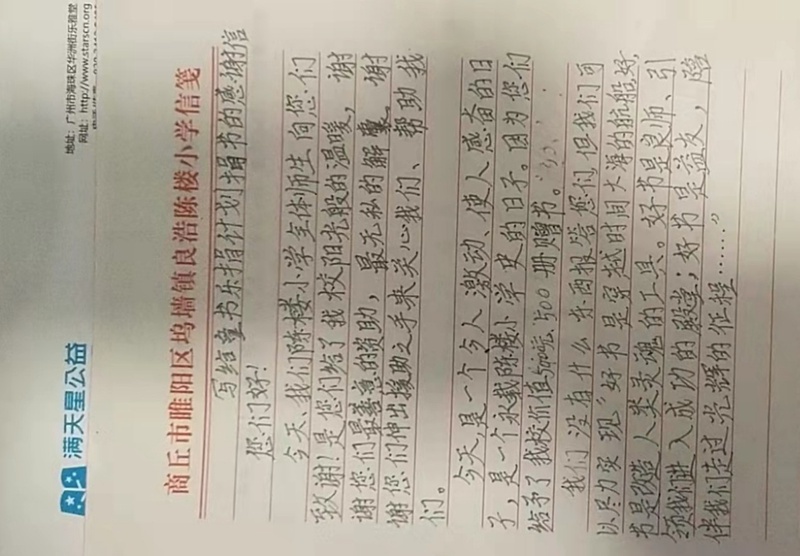 满天星公益
地址：广州市海珠区华洲街乐雅堂
网址：http://www.starscn.org
商丘市睢阳区坞墙镇良浩陈楼小学信笺
写给童书乐捐计划捐书的感谢信
您们好！
今天、我们陈楼小学全体师生向您们
致谢！是您们给了我校阳光般的温暖，谢
谢您们最善意的资助，最无私的解囊，谢
谢您们伸出援助之手来关心我们、帮助我
们。
今天，是一个令人激动、使人感奋的日
子，是一个永载陈楼小学史的日子。因为您们
给予了我校价值 500册赠书。
我们没有什么东西报答您们，但我们可
以尽力实现"好书是穿越时间大海的航船，好
书是改造人类灵魂的工具。好书是良师、引
领我们进入成功的殿堂；好书是益友，陪
伴我们走过光辉的征程……"